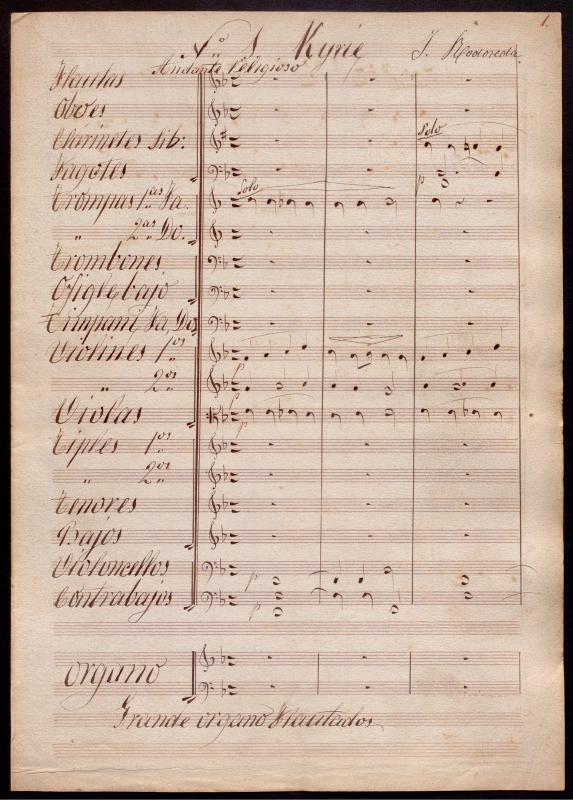 1.
Nº 1 Kyrie J. Rodoreda
Andante Religioso
Flautas
Oboes
Clarinetes Sib: Solo
Fagotes p
Trompas 1as Fa. Solo
" 2as Do.
Trombones
Ofigle bajo
Timpani Fa, Do
Violines 1os p
" 2os p
Violas p
Tiples 1os
" 2os
Tenores
Bajos
Violoncellos p
Contrabajos p
Organo
Grande organo Flautados